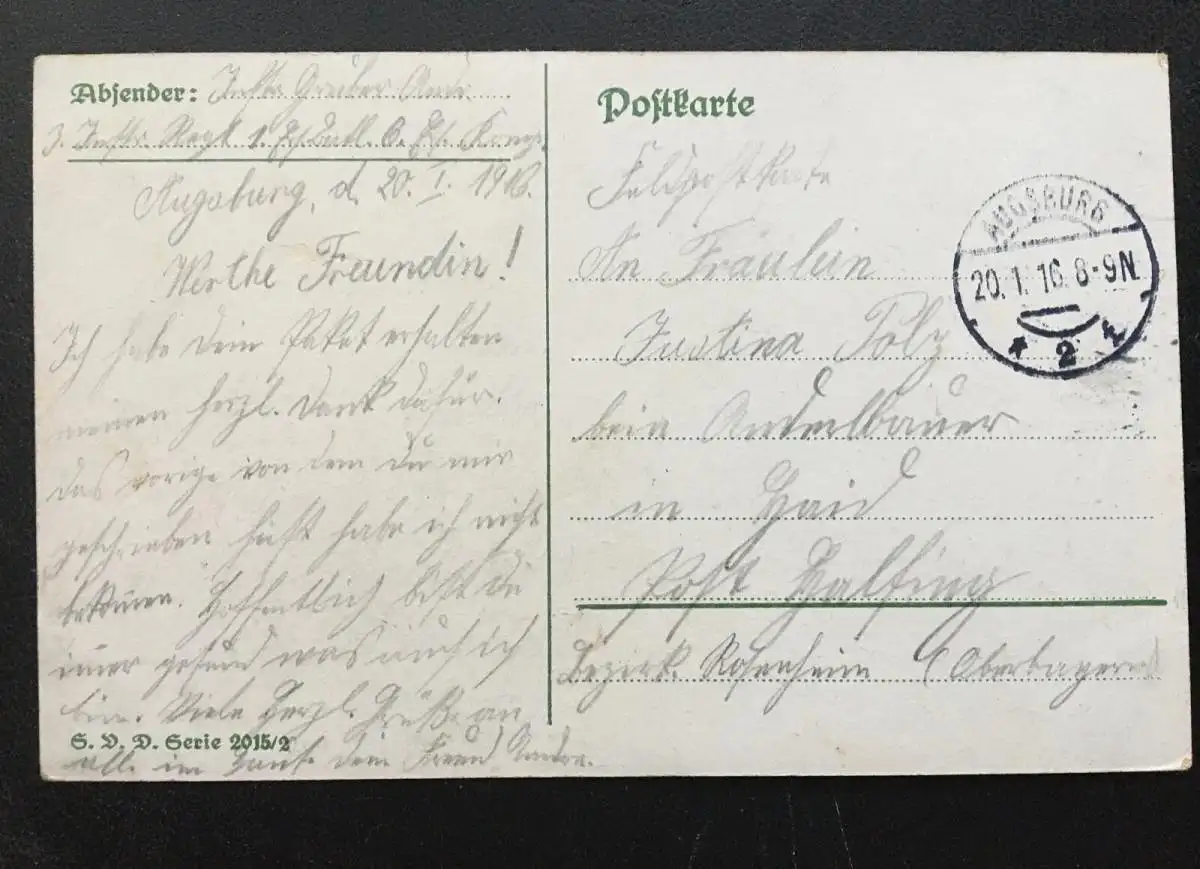 Absender: Inftr. Gruber Andr.
3. Inftr. Regt. 1. Ers. Batl. 6. Komp.
Augsburg, d. 20. I. 1916.
Werthe Freundin!
Ich habe dein Paket erhalten
meinen herzl. Dank dafür.
das vorige von dem du mir
geschrieben hast habe ich nicht
bekomen. Hoffentlich bist du
imer gesund was auch ich
bin. Viele Herzl. Grüße an
all. im Haus. dein Freund Andre.
S. V. D. Serie 2015/2
Postkarte
Feldpostkarte
An Fräulein
Justina Polz
bein Anderlbauer
in Haid
Post Halfing
Bezirk Rosenheim (Oberbayern)
AUGSBURG
20. 1. 16. 8-9 N.
* 2 *